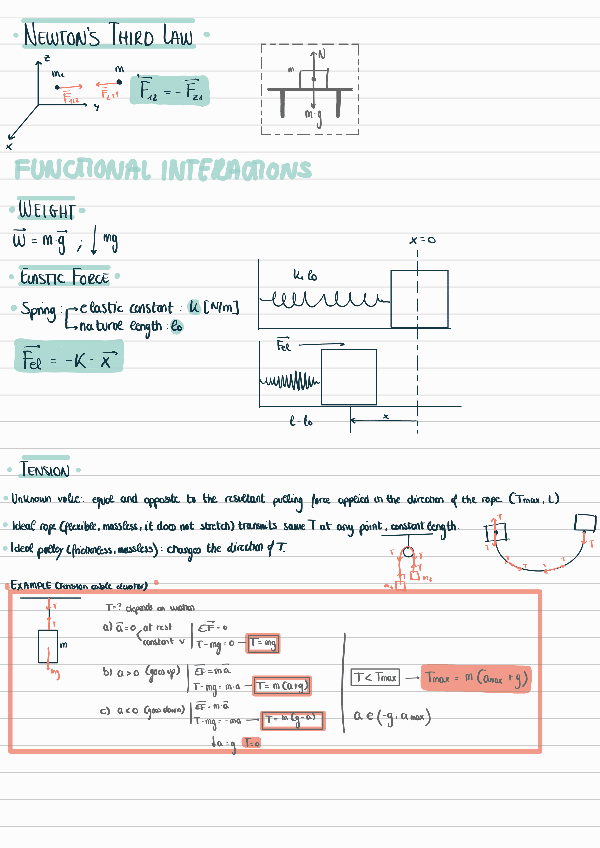 NEWTON'S THIRD LAW
z
m₁ m
F₁₂ F₂₁
y
x
F₁₂ = - F₂₁
N
m
m·g
FUNCTIONAL INTERACTIONS
WEIGHT
w = m·g ; ↓ mg
ELASTIC FORCE
Spring: → elastic constant: K [N/m]
→ natural length: l₀
F el = -K · x
x=0
K, l₀
F el
l-l₀
x
TENSION
Unknown valic: equal and opposite to the resultant pulling force applied in the direction of the rope (Tmax, L)
Ideal rope (flexible, massless, it does not stretch) transmits same T at any point, constant length.
Ideal pulley (frictionless, massless): changes the direction of T.
EXAMPLE (tension cable elevator)
T
m
mg
T=? depends on
a) a=0 at rest
constant v
ΣF=0
T-mg=0 → T=mg
b) a>0 (goes up)
ΣF=m·a
T-mg=m·a → T=m(a+g)
c) a<0 (goes down)
ΣF=m·a
T-mg=-ma → T=m(g-a)
↓a=g T=0
T<Tmax → Tmax = m(amax+g)
a∈(-g, amax)